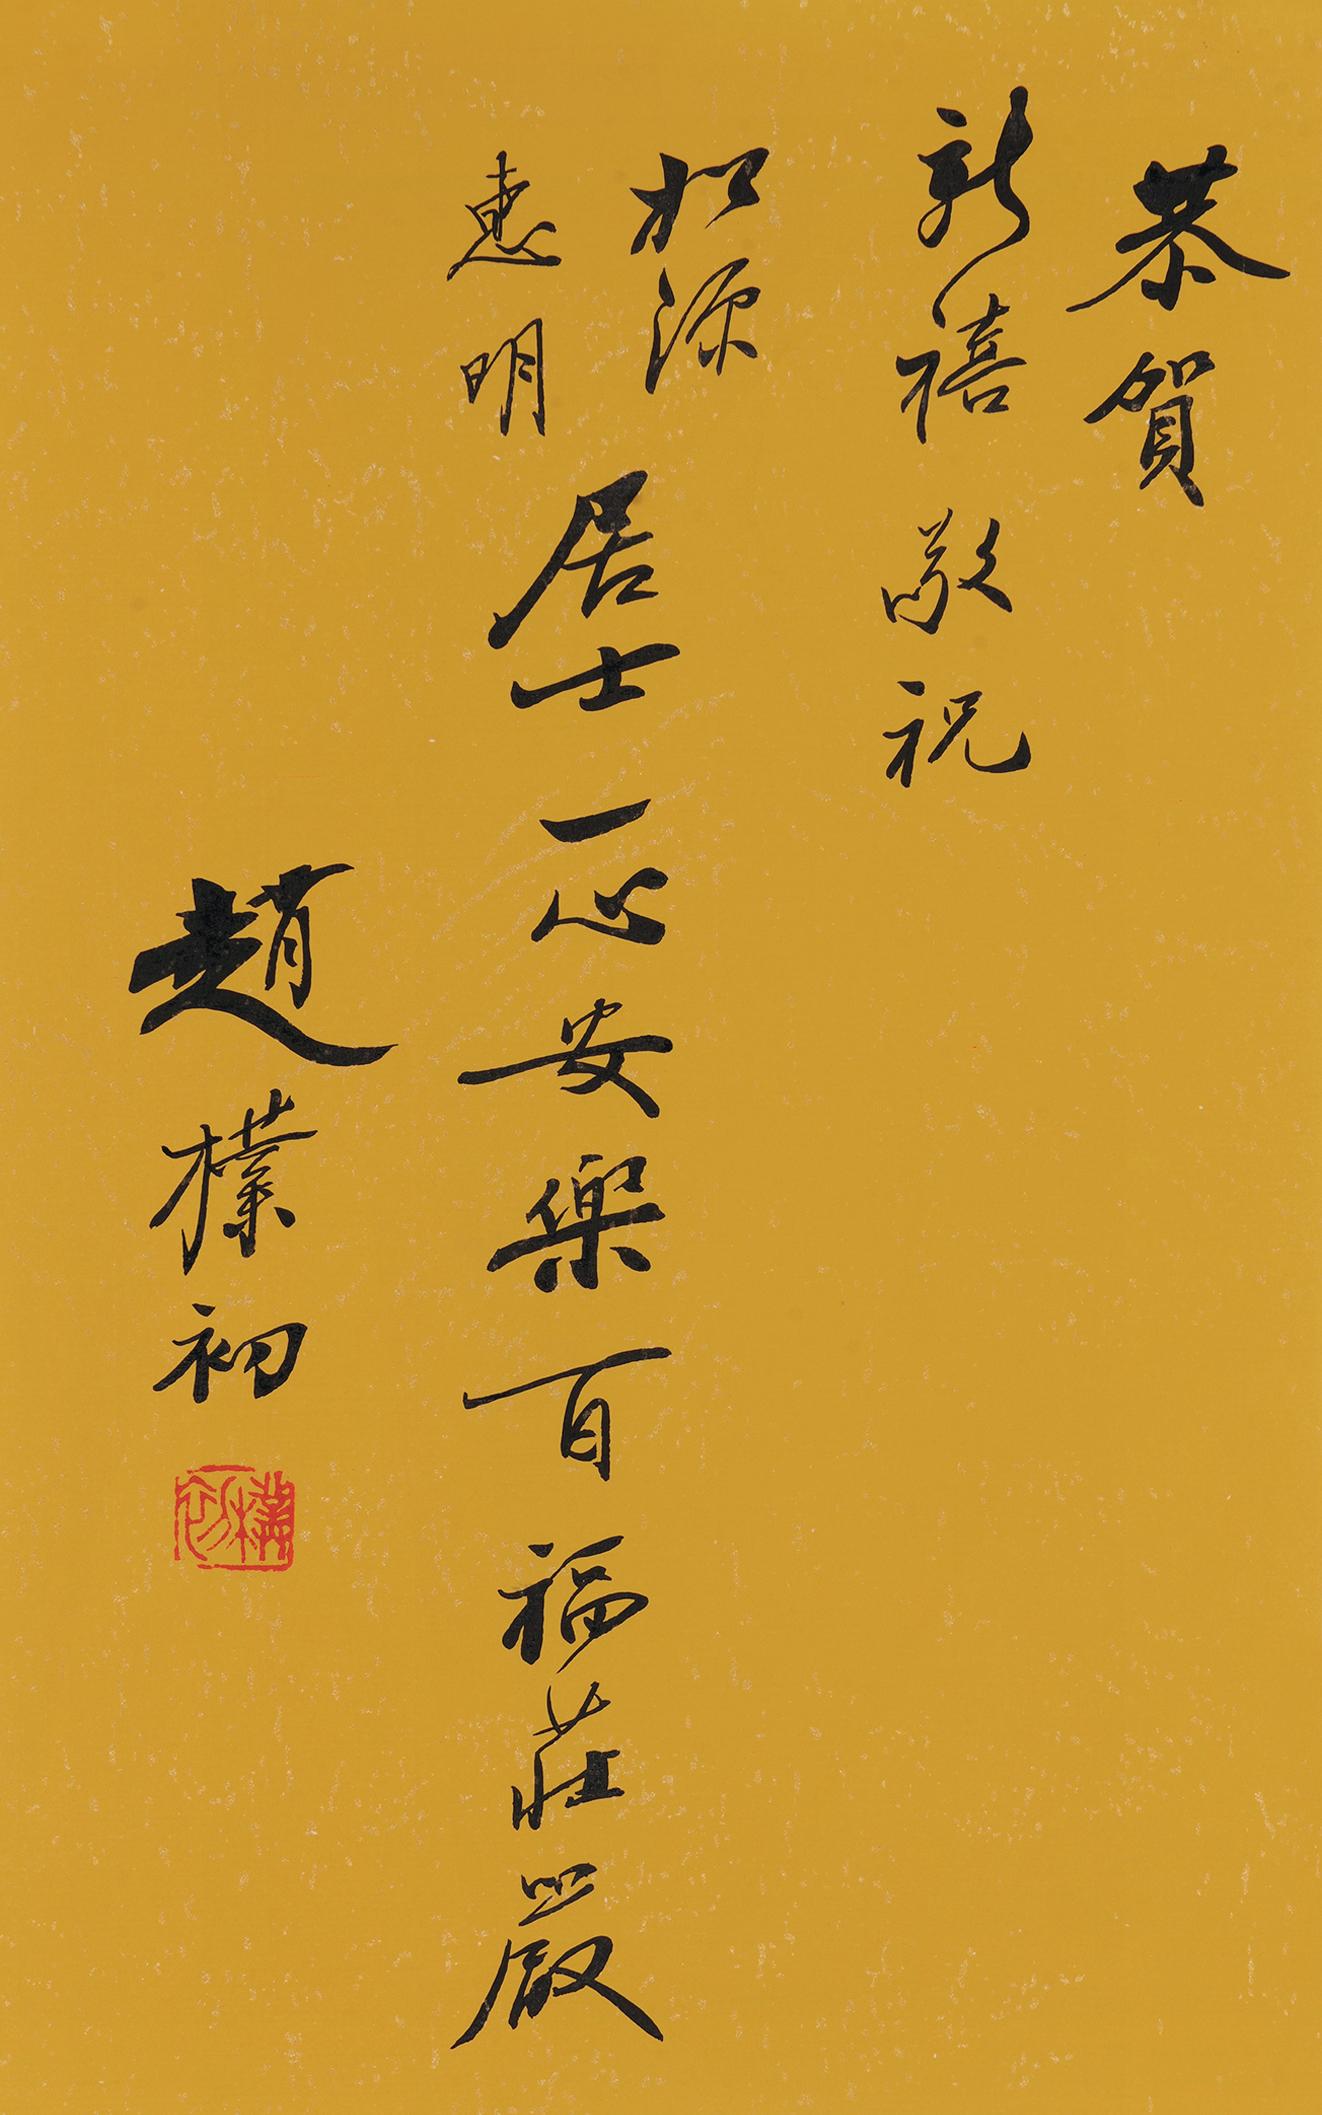 恭賀
新禧敬祝
松源
惠明
居士一心安樂百福莊嚴
趙樸初
樸初